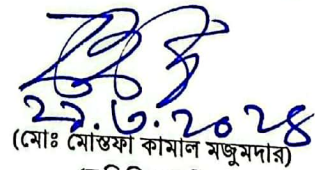 ২১.৩.২০২৪
(মোঃ মোস্তফা কামাল মজুমদার)